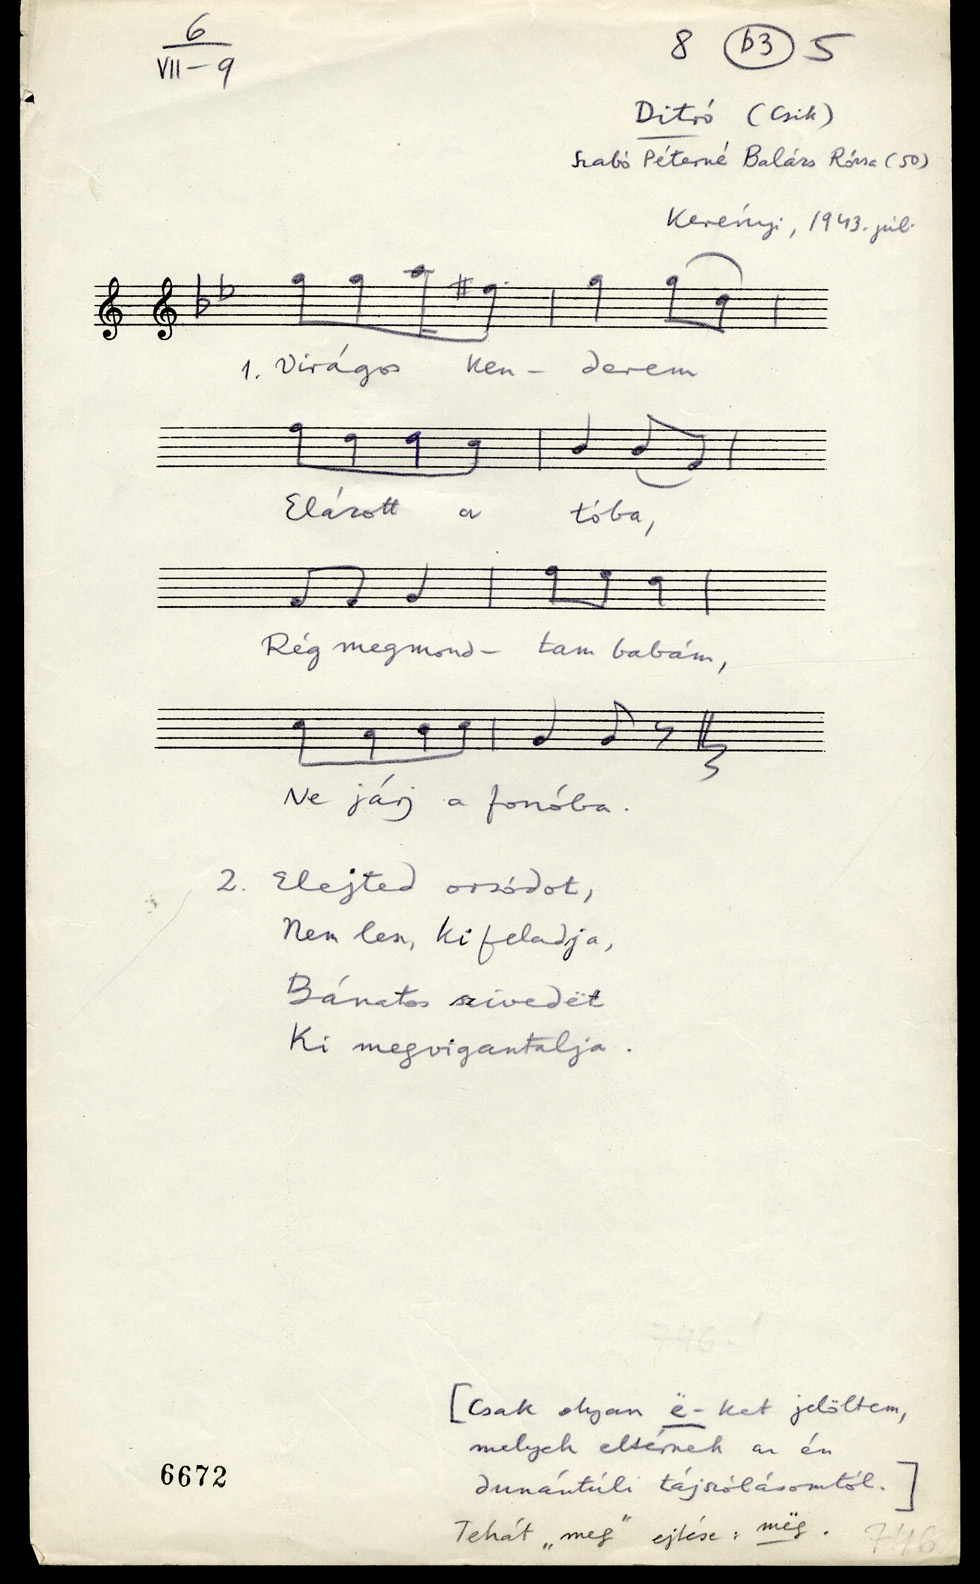 6
VII-9
8 b3 5
Ditró (Csik)
Szabó Péterné Balázs Rózsa (50)
Kerényi, 1943. júl.
1. Virágos ken- derem
Elázott a tóba,
Rég megmond- tam babám,
Ne járj a fonóba.
2. Elejted orsódot,
Nem lesz, ki feladja,
Bánatos szivedët
Ki megvigantalja.
[Csak olyan ë-ket jelöltem,
melyek eltérnek az én
dunántúli tájszólásomtól.]
Tehát „meg" ejtése: mëg.
6672
746
746